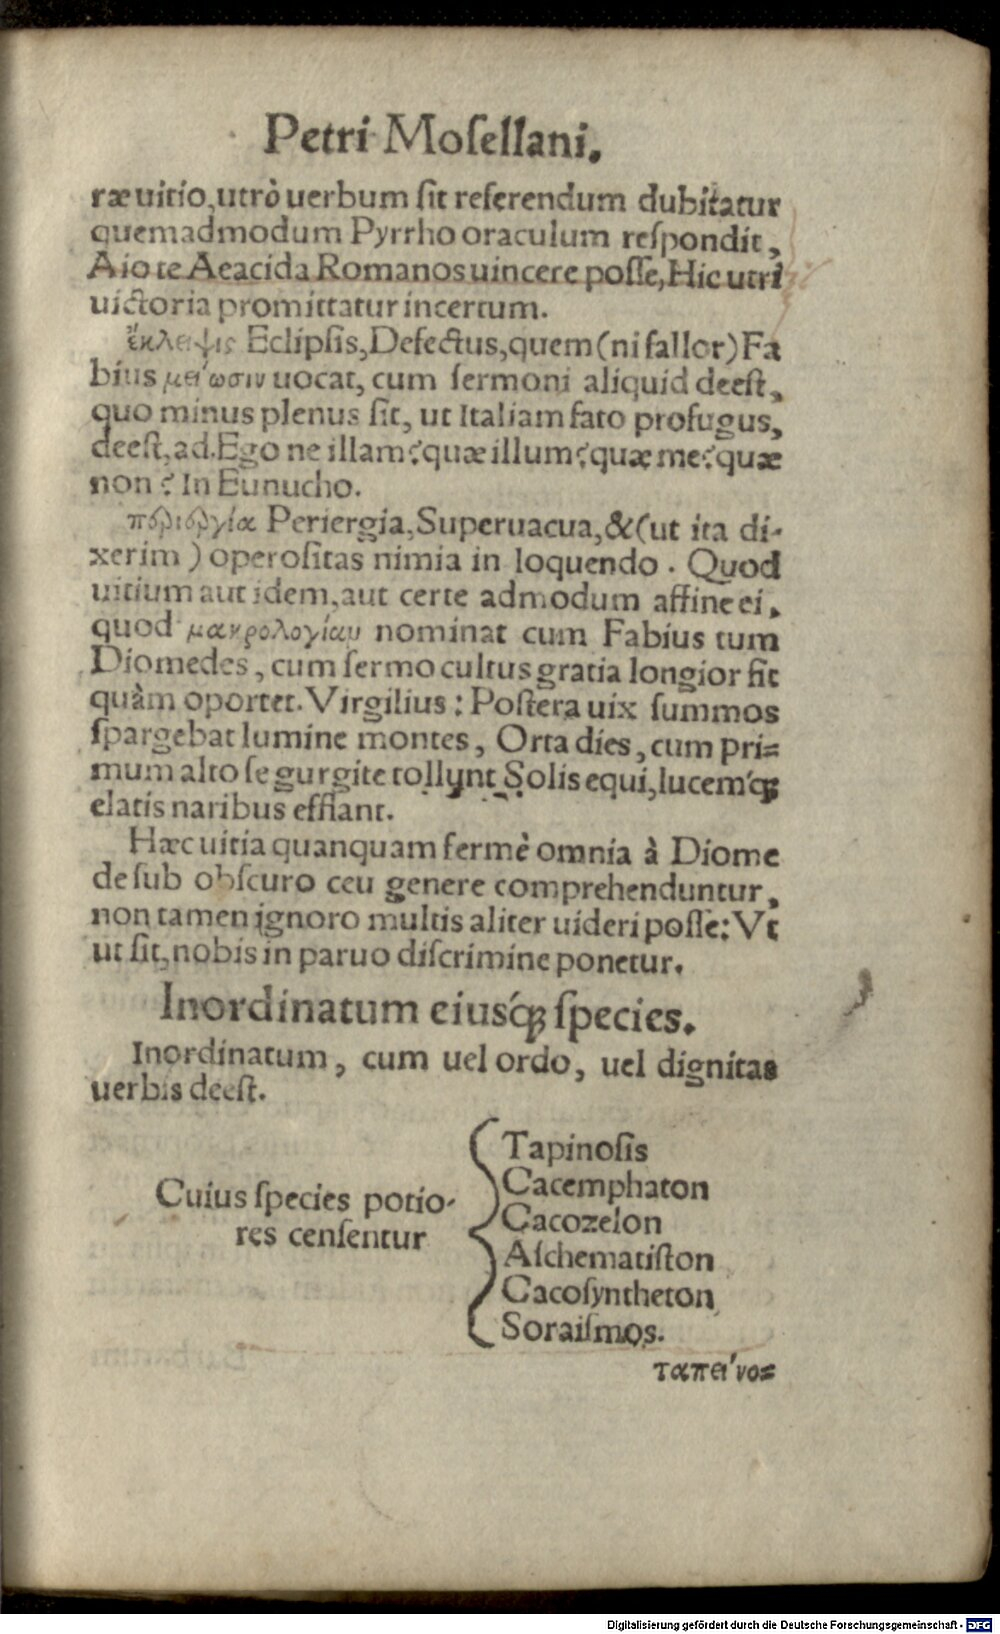 Petri Moſellani.
ræ uitio, utrò uerbum ſit referendum dubitatur
quemadmodum Pyrrho oraculum reſpondit,
Aio te Aeacida Romanos uincere poſſe, Hic utri
uictoria promittatur incertum.
ἔκλειψις Eclipſis, Defectus, quem (ni fallor) Fa
bius μείωσιν uocat, cum ſermoni aliquid deeſt,
quo minus plenus ſit, ut Italiam fato profugus,
deeſt, ad. Ego ne illam? quæ illum? quæ me? quæ
non? In Eunucho.
περιεργία Periergia, Superuacua, &(ut ita di-
xerim) operoſitas nimia in loquendo. Quod
uitium aut idem, aut certe admodum affine ei,
quod μακρολογίαν nominat cum Fabius tum
Diomedes, cum ſermo cultus gratia longior fit
quàm oportet. Virgilius: Poſtera uix ſummos
ſpargebat lumine montes, Orta dies, cum pri=
mum alto ſe gurgite tollunt Solis equi, lucemq́;
elatis naribus efflant.
Hæc uitia quanquam fermè omnia à Diome
de ſub obſcuro ceu genere comprehenduntur,
non tamen ignoro multis aliter uideri poſſe: Vt
ut ſit, nobis in paruo diſcrimine ponetur.
Inordinatum eiusq́; ſpecies.
Inordinatum, cum uel ordo, uel dignitas
uerbis deeſt.
Cuius ſpecies potio-
res cenſentur
Tapinoſis
Cacemphaton
Cacozelon
Aſchematiſton
Cacoſyntheton
Soraiſmos.
ταπείνο=
Digitalisierung gefördert durch die Deutsche Forschungsgemeinschaft - DFG